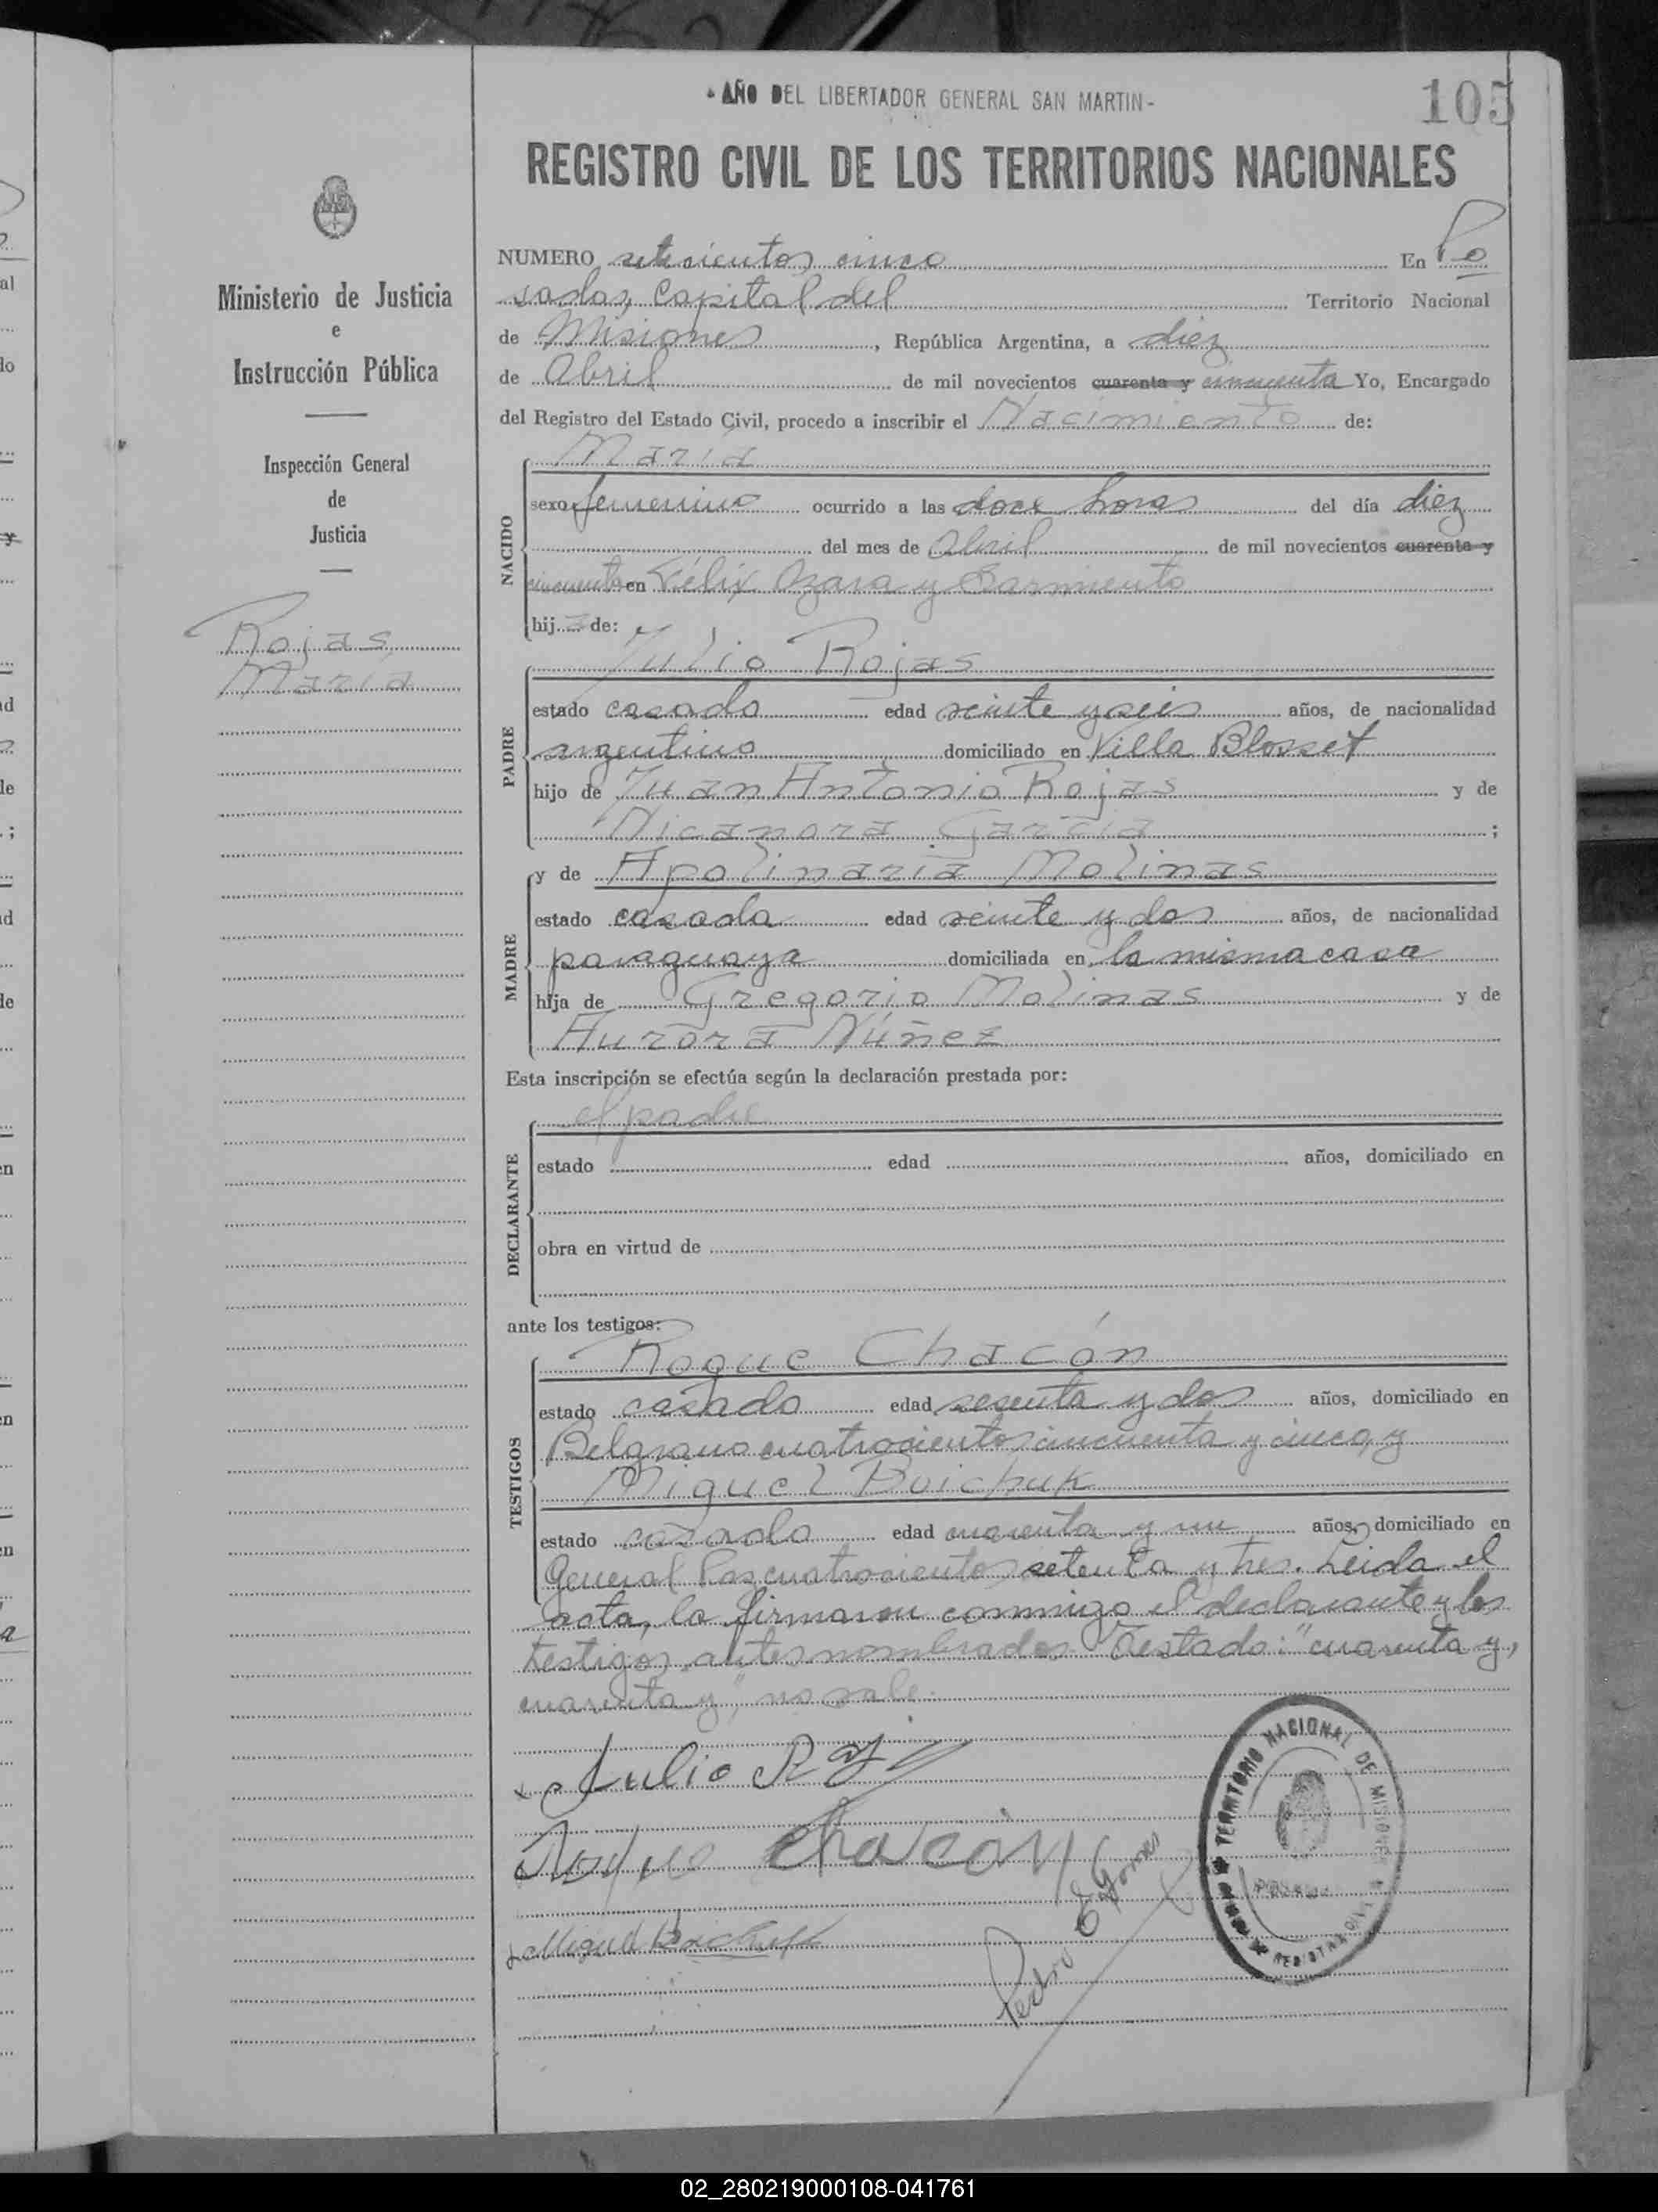 - AÑO DEL LIBERTADOR GENERAL SAN MARTIN -
105
REGISTRO CIVIL DE LOS TERRITORIOS NACIONALES
Ministerio de Justicia
e
Instrucción Pública
Inspección General
de
Justicia
Rojas
María
NUMERO setecientos cinco En Po
sadas, Capital del Territorio Nacional
de Misiones, República Argentina, a diez
de Abril de mil novecientos cuarenta y cincuenta Yo, Encargado
del Registro del Estado Civil, procedo a inscribir el Nacimiento de:
NACIDO
María
sexo femenino ocurrido a las doce horas del día diez
del mes de Abril de mil novecientos cuarenta y
cincuenta en Félix Azara y Sarmiento
hija de:
PADRE
Julio Rojas
estado casado edad veinte y seis años, de nacionalidad
argentino domiciliado en Villa Blosset
hijo de Juan Antonio Rojas y de
Nicanora García ;
MADRE
y de Apolinaria Molinas
estado casada edad veinte y dos años, de nacionalidad
paraguaya domiciliada en la misma casa
hija de Gregorio Molinas y de
Aurora Núñez
Esta inscripción se efectúa según la declaración prestada por:
DECLARANTE
el padre
estado edad años, domiciliado en
obra en virtud de
ante los testigos:
TESTIGOS
Roque Chacón
estado casado edad sesenta y dos años, domiciliado en
Belgrano cuatrocientos cincuenta y cinco, y
Miguel Boichuk
estado casado edad cuarenta y un años, domiciliado en
General Paz cuatrocientos setenta y tres. Leida el
acta, la firmaron conmigo el declarante y los
testigos antes nombrados. Testado: "cuarenta y,
cuarenta y", no vale.
Julio
Roque Chacón
Miguel Boichuk
Pedro E. Gomes
TERRITORIO NACIONAL DE MISIONES
POSADAS
02_280219000108-041761